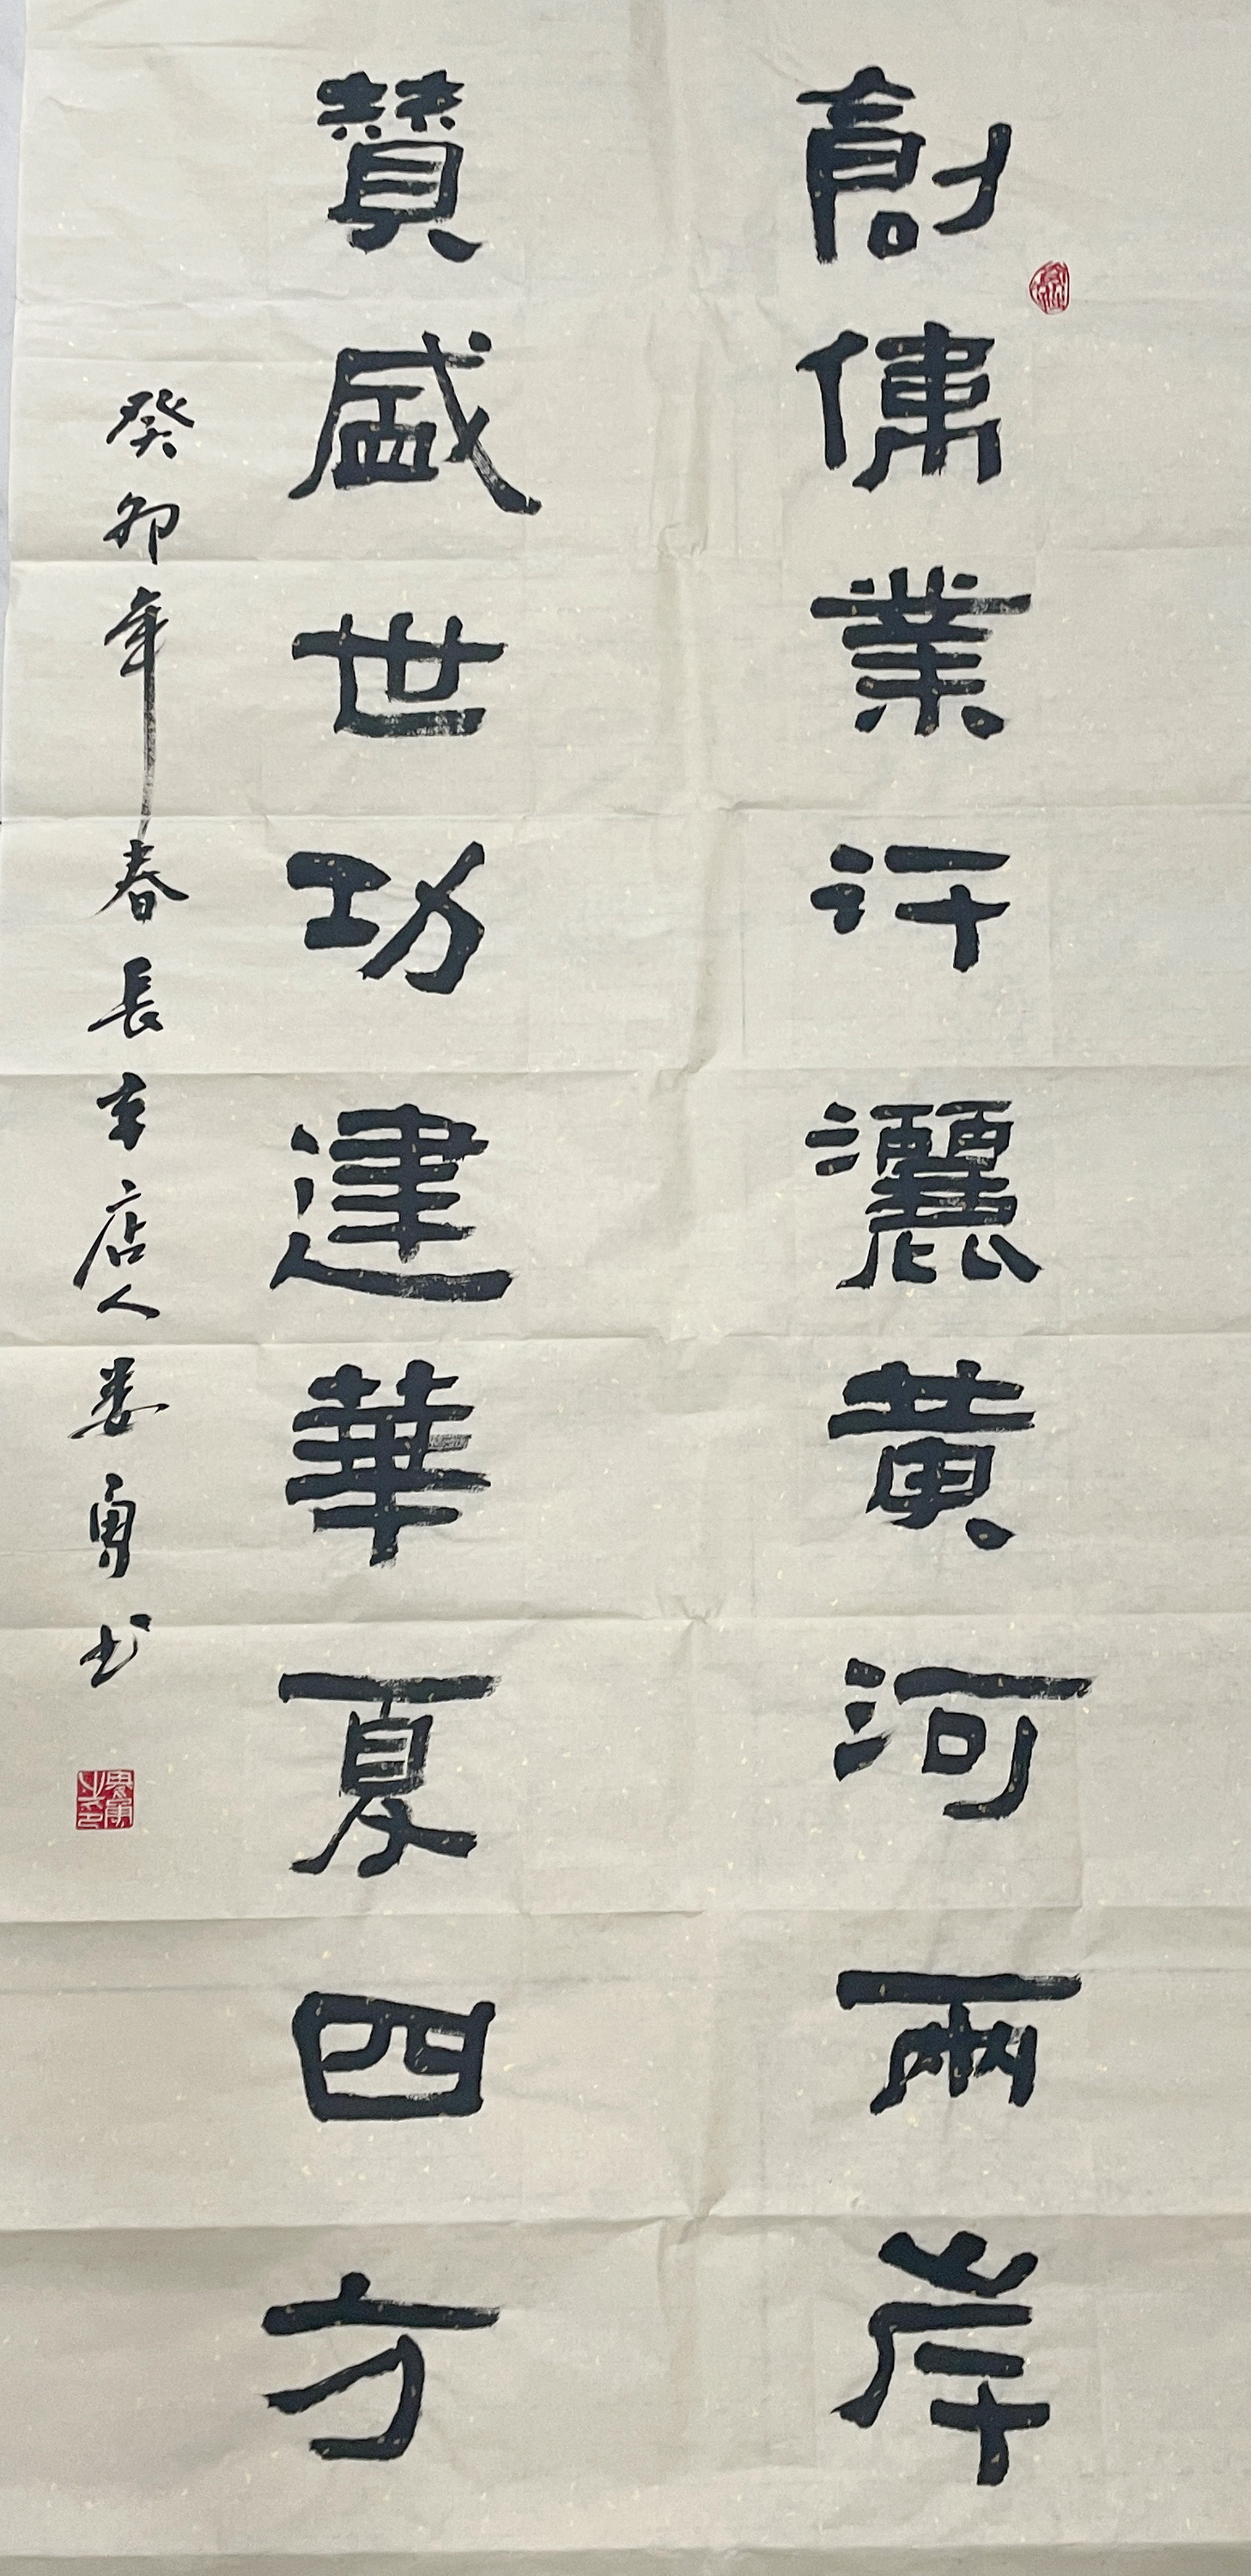 創偉業汗灑黃河兩岸
贊盛世功建華夏四方
癸卯年春長辛店人娄勇书